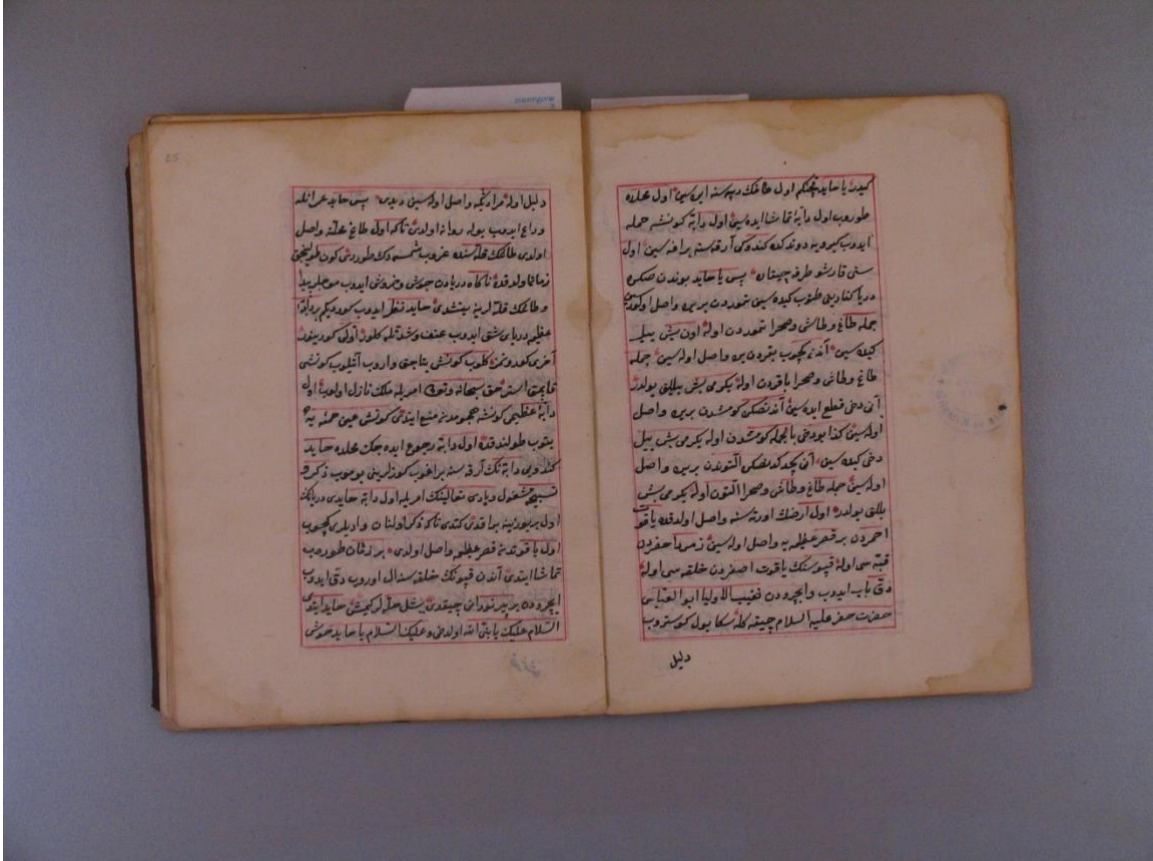 كيدر يا حايد چنكم اول طاغك دپه سنه ايره سين اول محلده
طوروب اول دابهٔ تماشا ايده سين اول دابه كونشه حمله
ايدوب كيرويه دوندكده كندوكى آرقه سنه براغه سين اول
سنى قارشو طرفه چيقاره پس يا حايد بوندن صكره
دريا كنارينى طوتوب كيده سين تموردن يره واصل اولورسين
جمله طاغ و طاش و صحرا تموردن اوله اون بش ييللق
كيده سين آندن كچوب بقردن يره واصل اوله سين جمله
طاغ و طاش و صحرا باقردن اوله يكرمى بش ييللق يولدر
آنى دخى قطع ايده سين آندن صكره كومشدن يره واصل
اوله سين كذا بو دخى بالجمله كومشدن اوله يكرمى بش ييل
دخى كيده سين آنى كچدكدنصكره التوندن يره واصل
اوله سين جمله طاغ و طاش و صحرا التون اوله يكرمى بش
ييللق يولدر اول ارضك اورته سنه واصل اولدقده ياقوت
احمردن بر قصر عظيمه يه واصل اوله سين زمرد اخضردن
قبه سى اوله قپوسنك ياقوت اصفردن خلقه سى اوله
دق باب ايدوب و ايچرودن نقيب الاوليا ابو العباس
حضرت خضر عليه السلام چيقه كله سكا يول كوستروب
دليل
دليل اوله مرادكه واصل اوله سين ديدى پس حايد عمرانله
وداع ايدوب يوله روانه اولدى تا كه اول طاغ محلنه واصل
اولدى طاغك قله سنده غروب شمسه دك طوردى كون طولنجق
زمان اولدقده ناكاه دريادن جوش و خروش ايدوب موجلر پيدا
و طاغك قله لرينه يتشدى حايد نظر ايدوب كورديكم بر دابهٔ
عظيم درياى شق ايدوب عنف و شدتله كلور اولى كورينور
آخرى كورونمز كلوب كونش بتاجق واروب آتيلوب كونشى
قاپمق استر حق سبحانه وتعالى امريله ملك نازل اولوب اول
دابهٔ عظيمى كونشه هجومدن منع ايتدى كونش عين حمئه يه
يتوب طولندقده اول دابه رجوع ايده جك محلده حايد
كندويى دابه نك آرقه سنه براغوب كوزلرينى يوموب ذكر و
تسبيحه مشغول و بارى تعالينك امريله اول دابه حايدى دريانك
اول بر يوزينه براقدى كتدى تا كه ذكر اولنان واديلرى كچوب
اول ياقوتدن قصر عظيمه واصل اولدى بر زمان طوروب
تماشا ايتدى آندن قپونك خلقه سنه ال اوروب دق ايدوب
ايچرودن بر پير نورانى چيقدى يشل حله لر كيمش حايد ايتدى
السلام عليك يا نبى الله اول دخى و عليك السلام يا حايد خوش